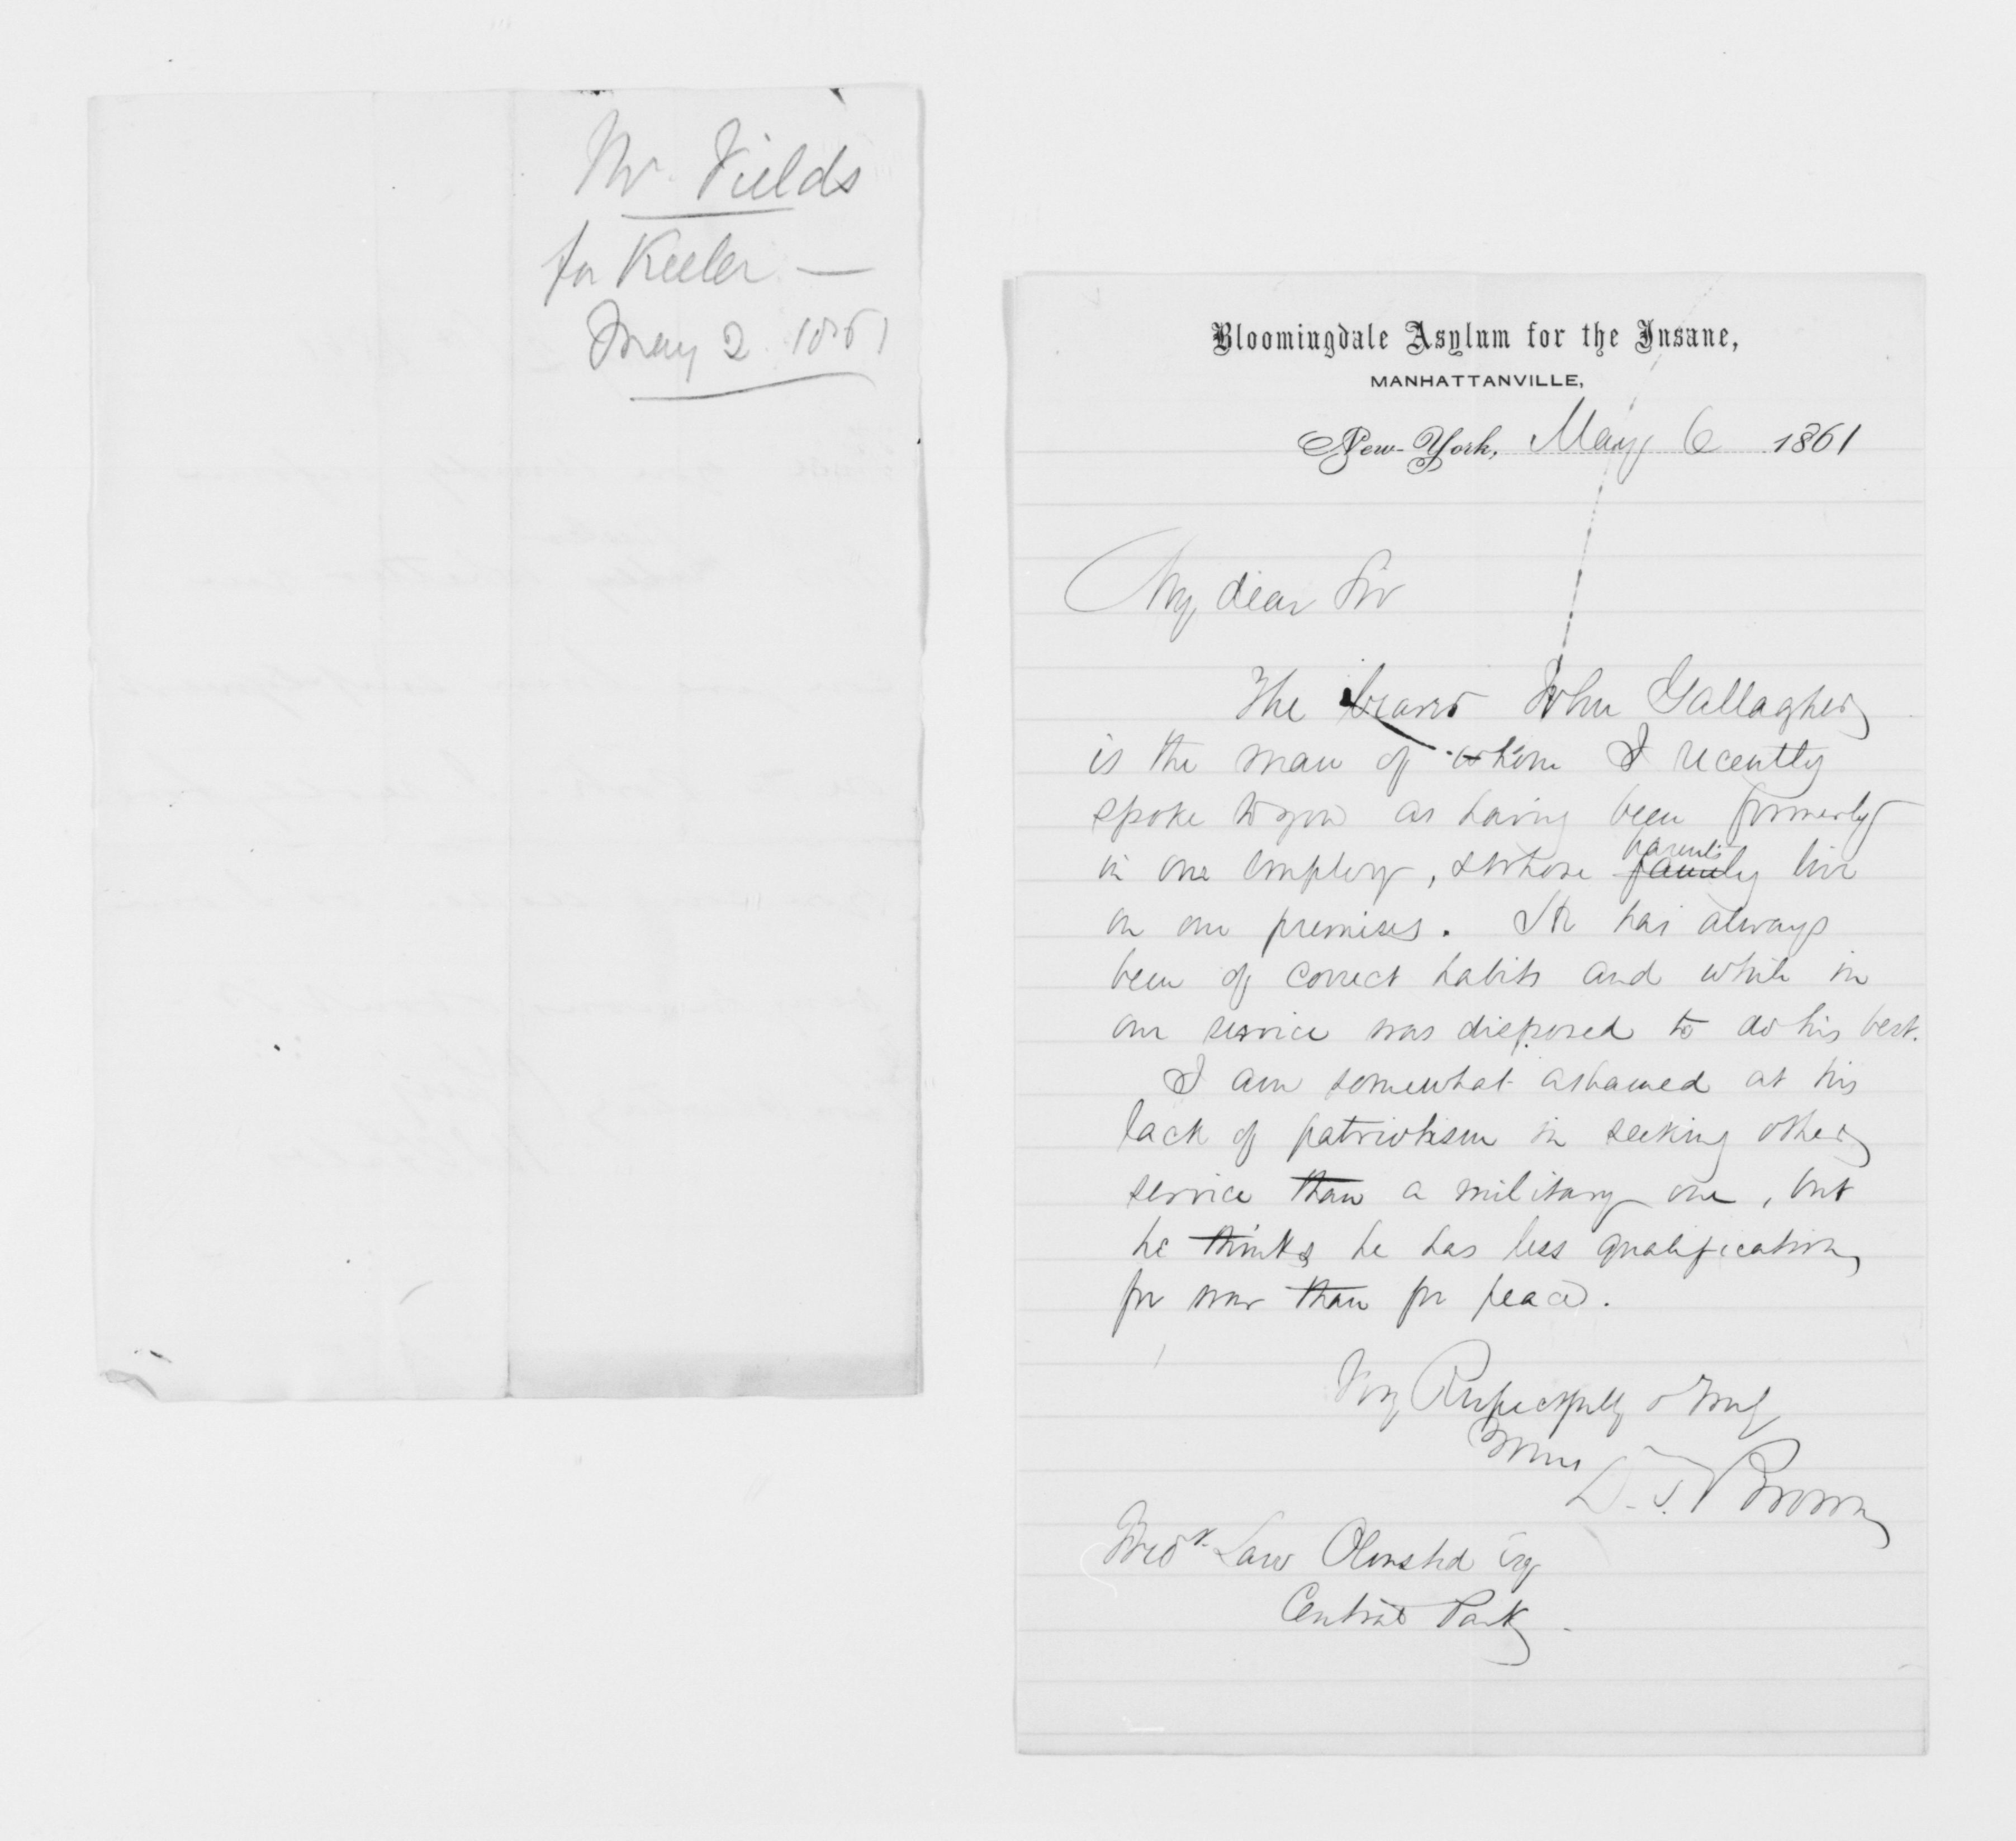 Mr Fields
for Keeler —
May 2 1861
Bloomingdale Asylum for the Insane,
MANHATTANVILLE,
New-York, May 6 1861
My dear Sir
The bearer John Gallagher
is the man of whom I recently
spoke to you as having been formerly
in our employ, & whose family parents live
on our premises. He has always
been of correct habits and while in
our service was disposed to do his best.
I am somewhat ashamed at his
lack of patriotism in seeking other
service than a military one, but
he thinks he has less qualification
for war than for peace.
Very Respectfully & truly
Yours
D. T. Brown
Fredk. Law Olmsted Esq
Central Park